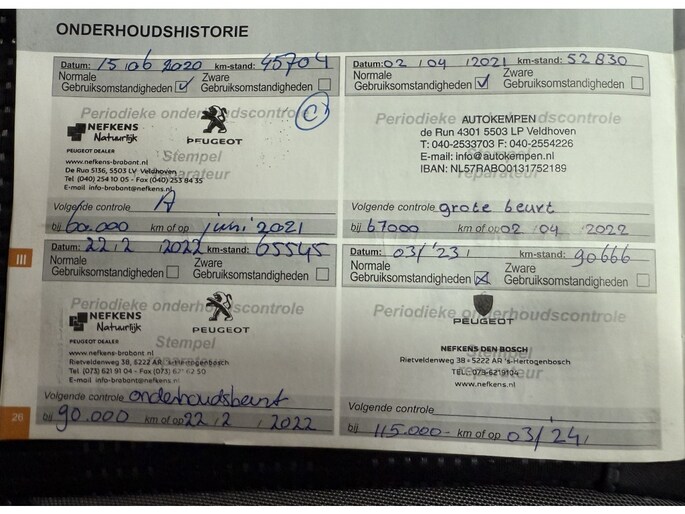 ONDERHOUDSHISTORIE
Datum: 15 06 2020 km-stand: 45704
Normale Gebruiksomstandigheden ☑ Zware Gebruiksomstandigheden ☐
Periodieke onderhoudscontrole
C
NEFKENS
Natuurlijk
PEUGEOT
PEUGEOT DEALER
Stempel
reparateur
www.nefkens-brabant.nl
De Run 5136, 5503 LV Veldhoven
Tel (040) 254 10 05 - Fax (040) 253 84 35
E-mail info-brabant@nefkens.nl
Volgende controle A
bij 60.000 km of op juni 2021
Datum: 02 / 04 / 2021 km-stand: 52830
Normale Gebruiksomstandigheden ☑ Zware Gebruiksomstandigheden ☐
Periodieke onderhoudscontrole
AUTOKEMPEN
de Run 4301 5503 LP Veldhoven
T: 040-2533703 F: 040-2554226
E-mail: info@autokempen.nl
IBAN: NL57RABO0131752189
Stempel
reparateur
Volgende controle grote beurt
bij 67000 km of op 02 / 04 / 2022
III
Datum: 22 / 2 / 2022 km-stand: 65545
Normale Gebruiksomstandigheden ☐ Zware Gebruiksomstandigheden ☐
Periodieke onderhoudscontrole
NEFKENS
Natuurlijk
PEUGEOT
PEUGEOT DEALER
Stempel
reparateur
www.nefkens-brabant.nl
Rietveldenweg 38, 5222 AR 's-Hertogenbosch
Tel. (073) 621 91 04 - Fax (073) 50
E-mail info-brabant@nefkens.nl
Volgende controle onderhoudsbeurt
bij 90.000 km of op 22 / 2 / 2022
Datum: 03/'23 km-stand: 90666
Normale Gebruiksomstandigheden ☒ Zware Gebruiksomstandigheden ☐
Periodieke onderhoudscontrole
PEUGEOT
Stempel
reparateur
NEFKENS DEN BOSCH
Rietveldenweg 38 - 5222 AR 's-Hertogenbosch
TEL.: 073-6219104
www.nefkens.nl
Volgende controle
bij 115.000- km of op 03/24
26